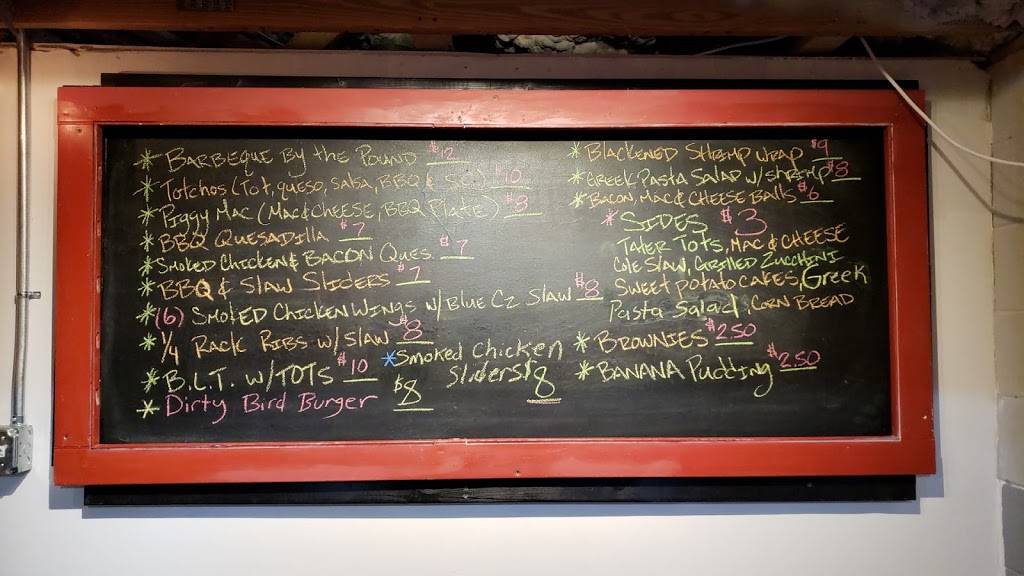 * BARBEQUE BY the POUND $12
* Totchos (Tot, queso, Salsa, BBQ & SC) $10
* Piggy Mac (Mac & CHEESE, BBQ Plate) $8
* BBQ QUESADILLA $7
* SMOKED CHICKEN & BACON QUES $7
* BBQ & SLAW SLIDERS $7
* (6) SMOKED CHICKEN WINGS w/ BLUE CZ SLAW $8
* 1/4 RACK RIBS w/ SLAW $8
* B.L.T. w/ TOTS $10
* Dirty Bird Burger $8
* Smoked Chicken
Sliders $8
* BLACKENED SHRIMP WRAP $9
* GREEK PASTA SALAD w/ shrimp $8
* BACON, MAC & CHEESE BALLS $6
* SIDES $3
TATER TOTS, MAC & CHEESE
Cole SLAW, GRILLED ZUCCHINI
SWEET POTATO CAKES, Greek
Pasta Salad, CORN BREAD
* BROWNIES $2.50
* BANANA Pudding $2.50